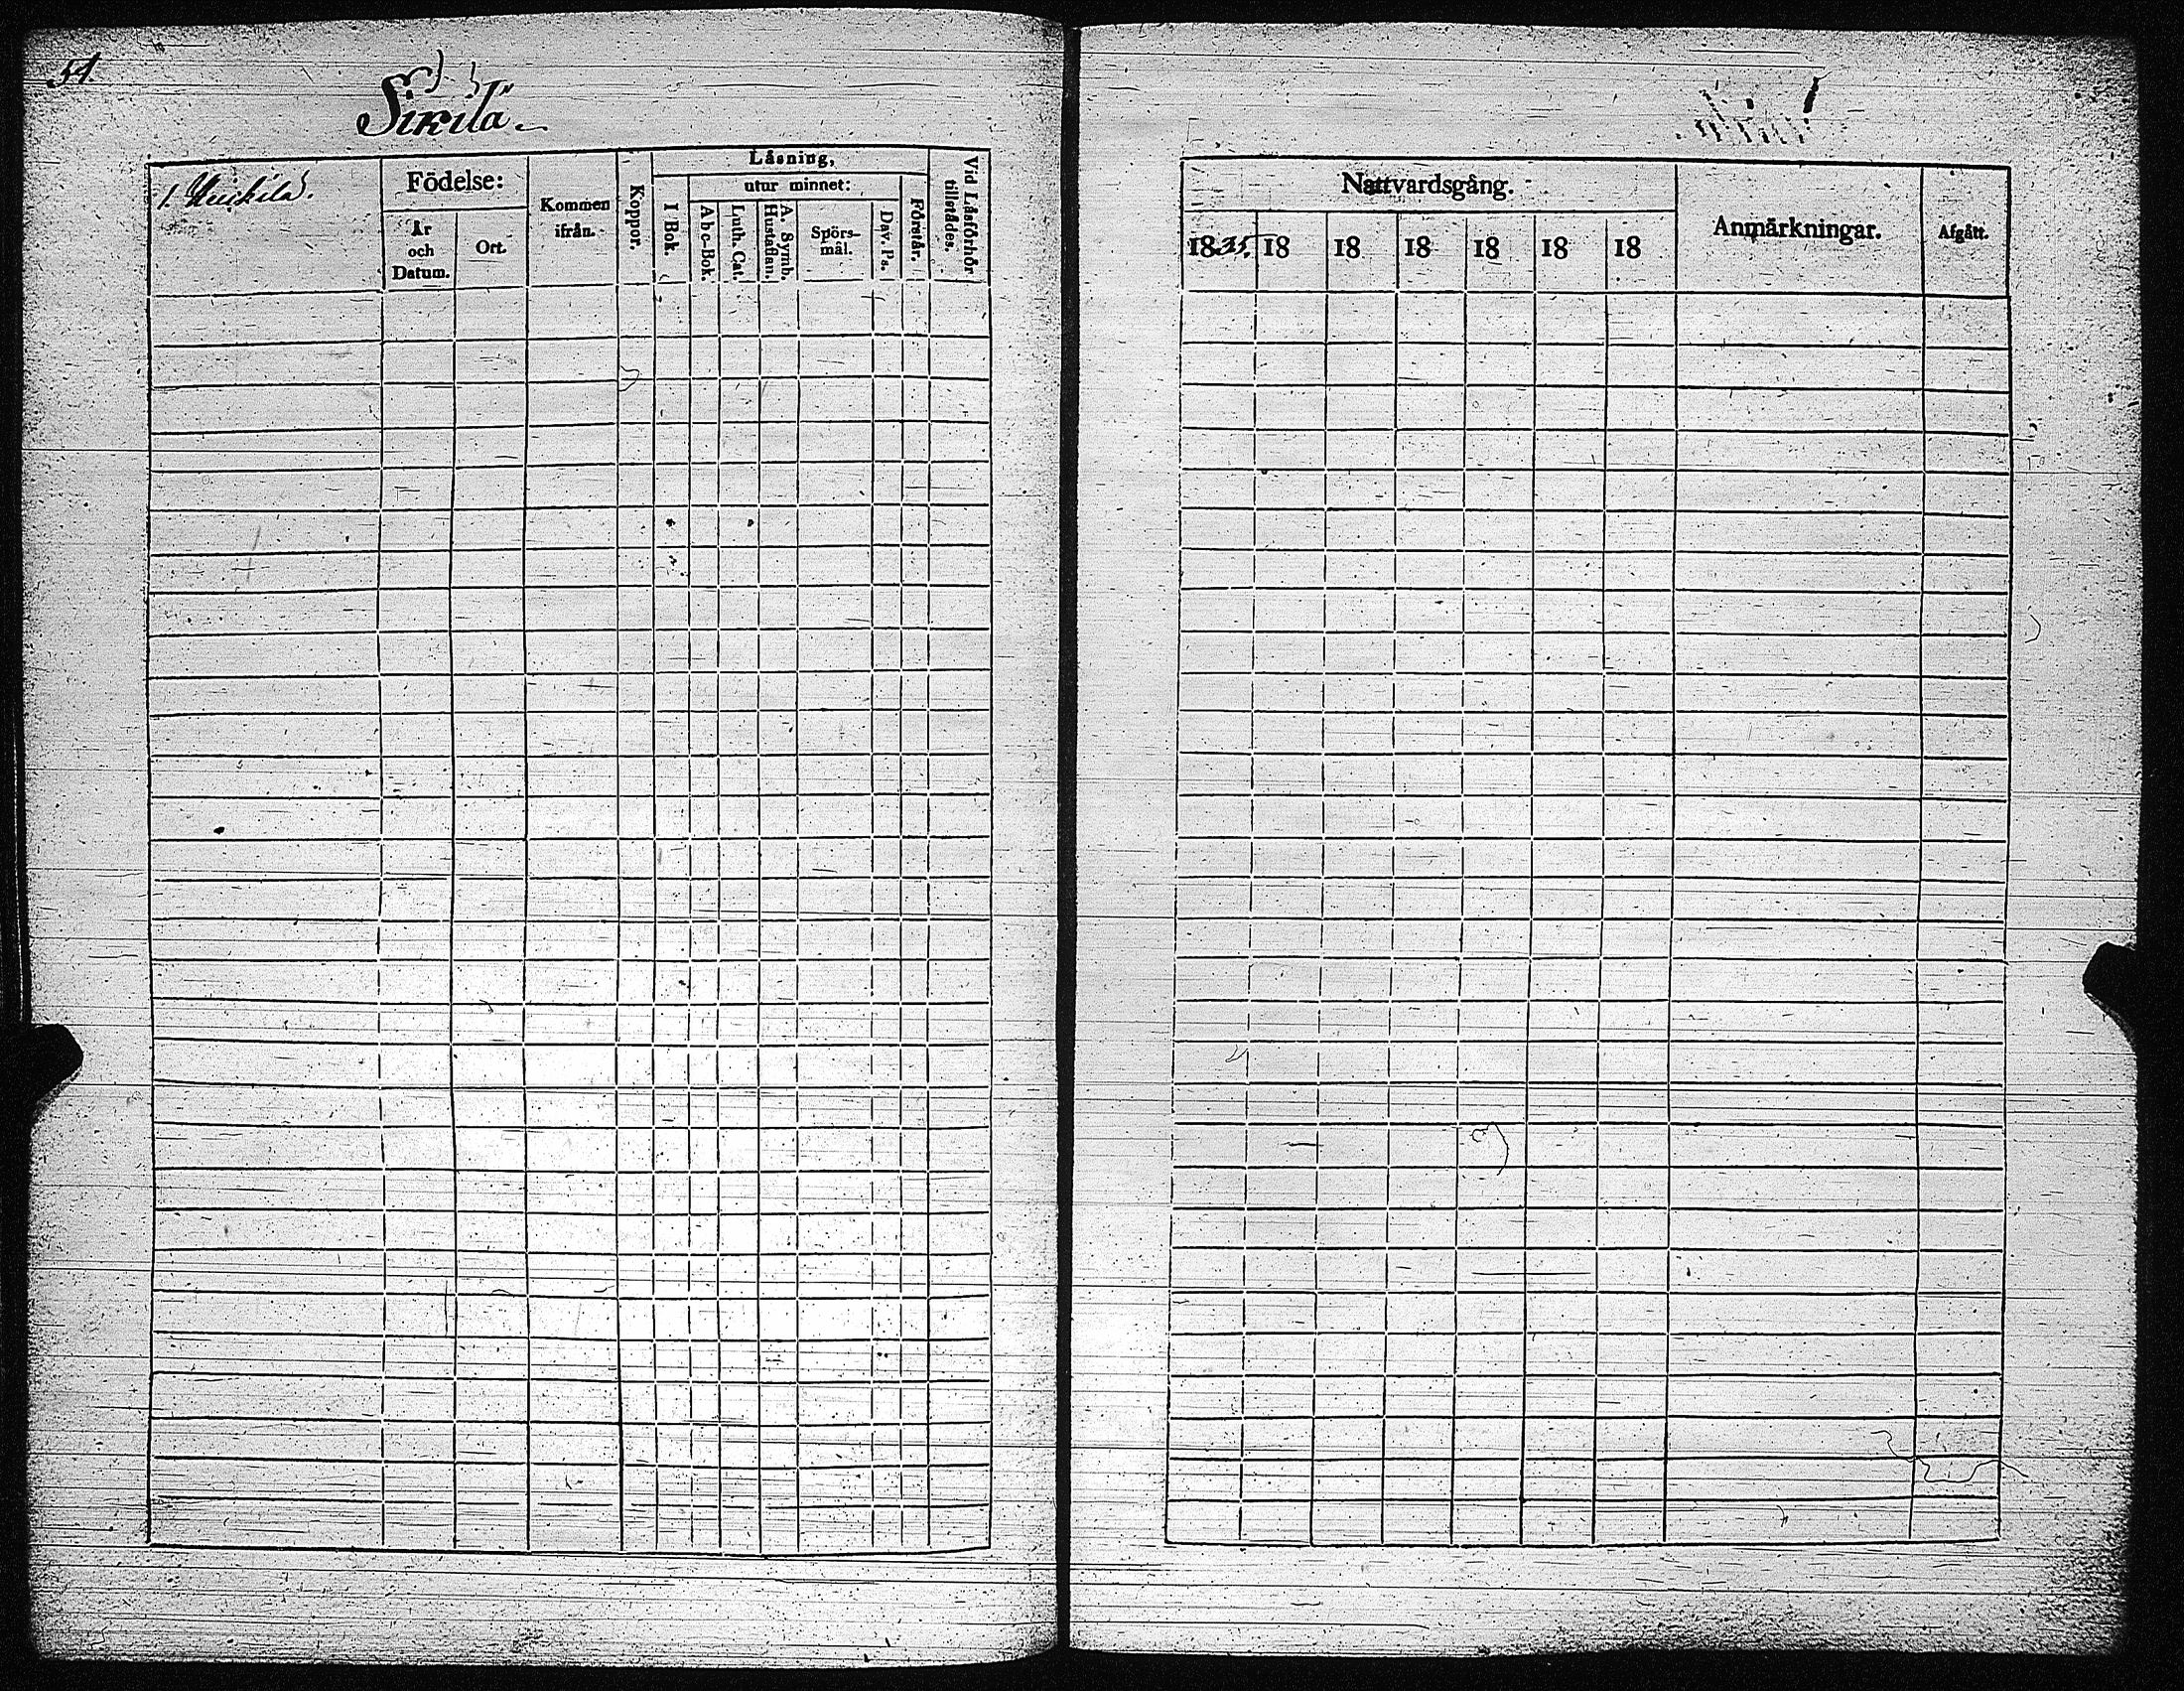 51.
Sikilä
1.
Födelse:
År
och
Datum.
Ort.
Kommen
ifrån.
Koppor.
Läsning,
utur minnet:
I Bok.
Abc-Bok.
Luth. Cat.
A. Symb.
Hustaflan.
Spörs-
mål.
Dav. Ps.
Förstår.
Vid Läsförhör
tillstädes.
Nattvardsgång.
1835. 18 18 18 18 18 18
Anmärkningar.
Afgått.